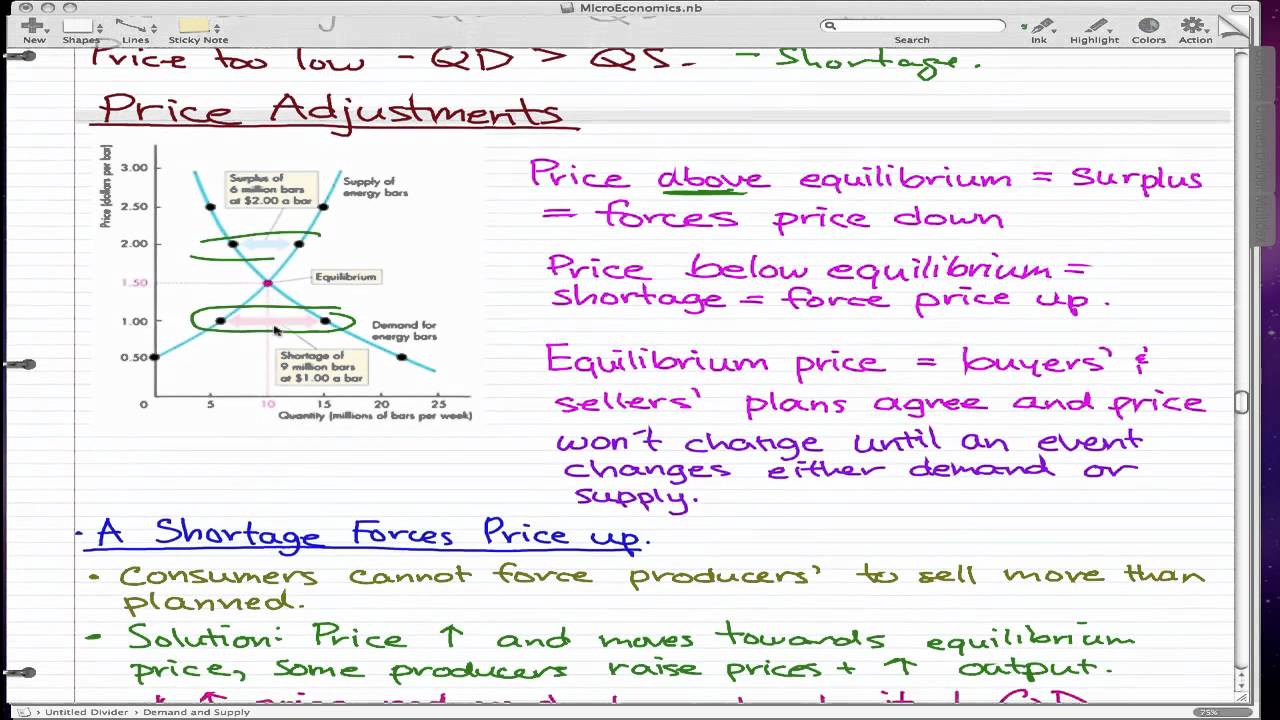 MicroEconomics.nb
New Shapes Lines Sticky Note Search Ink Highlight Colors Action
Price too low - QD > QS. - Shortage.
Price Adjustments
Price (dollars per bar)
3.00
2.50
2.00
1.50
1.00
0.50
0 5 10 15 20 25
Quantity (millions of bars per week)
Surplus of
6 million bars
at $2.00 a bar
Supply of
energy bars
Equilibrium
Demand for
energy bars
Shortage of
9 million bars
at $1.00 a bar
Price above equilibrium = Surplus
= forces price down
Price below equilibrium =
shortage = force price up.
Equilibrium price = buyers' &
sellers' plans agree and price
won't change until an event
changes either demand or
supply.
· A Shortage Forces Price up.
• Consumers cannot force producers' to sell more than
planned.
• Solution: Price ↑ and moves towards equilibrium
price, some producers raise prices + ↑ output.
Untitled Divider › Demand and Supply
75%